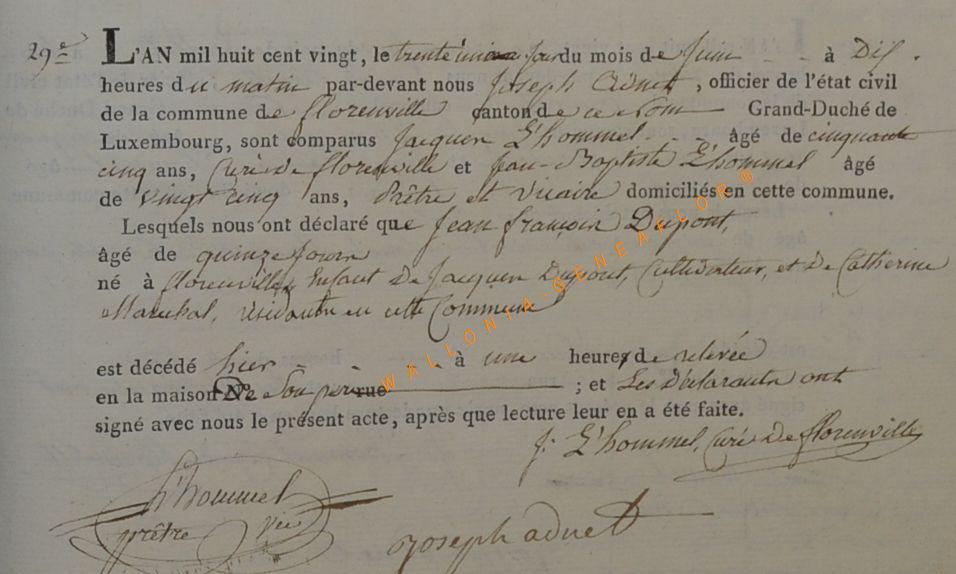 29e
L'AN mil huit cent vingt, le trente unieme Jour du mois de Juin à Dix
heures du matin par-devant nous Joseph Adnet, officier de l'état civil
de la commune de florenville canton de ce Nom Grand-Duché de
Luxembourg, sont comparus Jacques L'hommel âgé de cinquante
cinq ans, Curé De florenville et Jean-Baptiste L'hommel âgé
de vingt cinq ans, Prêtre et Vicaire domiciliés en cette commune.
Lesquels nous ont déclaré que Jean françois Dupont,
âgé de quinze Jours
né à florenville, Enfant De Jacques Dupont, Cultivateur, et De Catherine
Marechal, résidants en cette Commune
est décédé hier à une heure de relevée
en la maison De Son père rue ; et Les Déclarants ont
signé avec nous le présent acte, après que lecture leur en a été faite.
J. L'hommel, Curé De florenville
L'hommel
prêtre vic
joseph adnet
WALLONIA-GENEALOR®